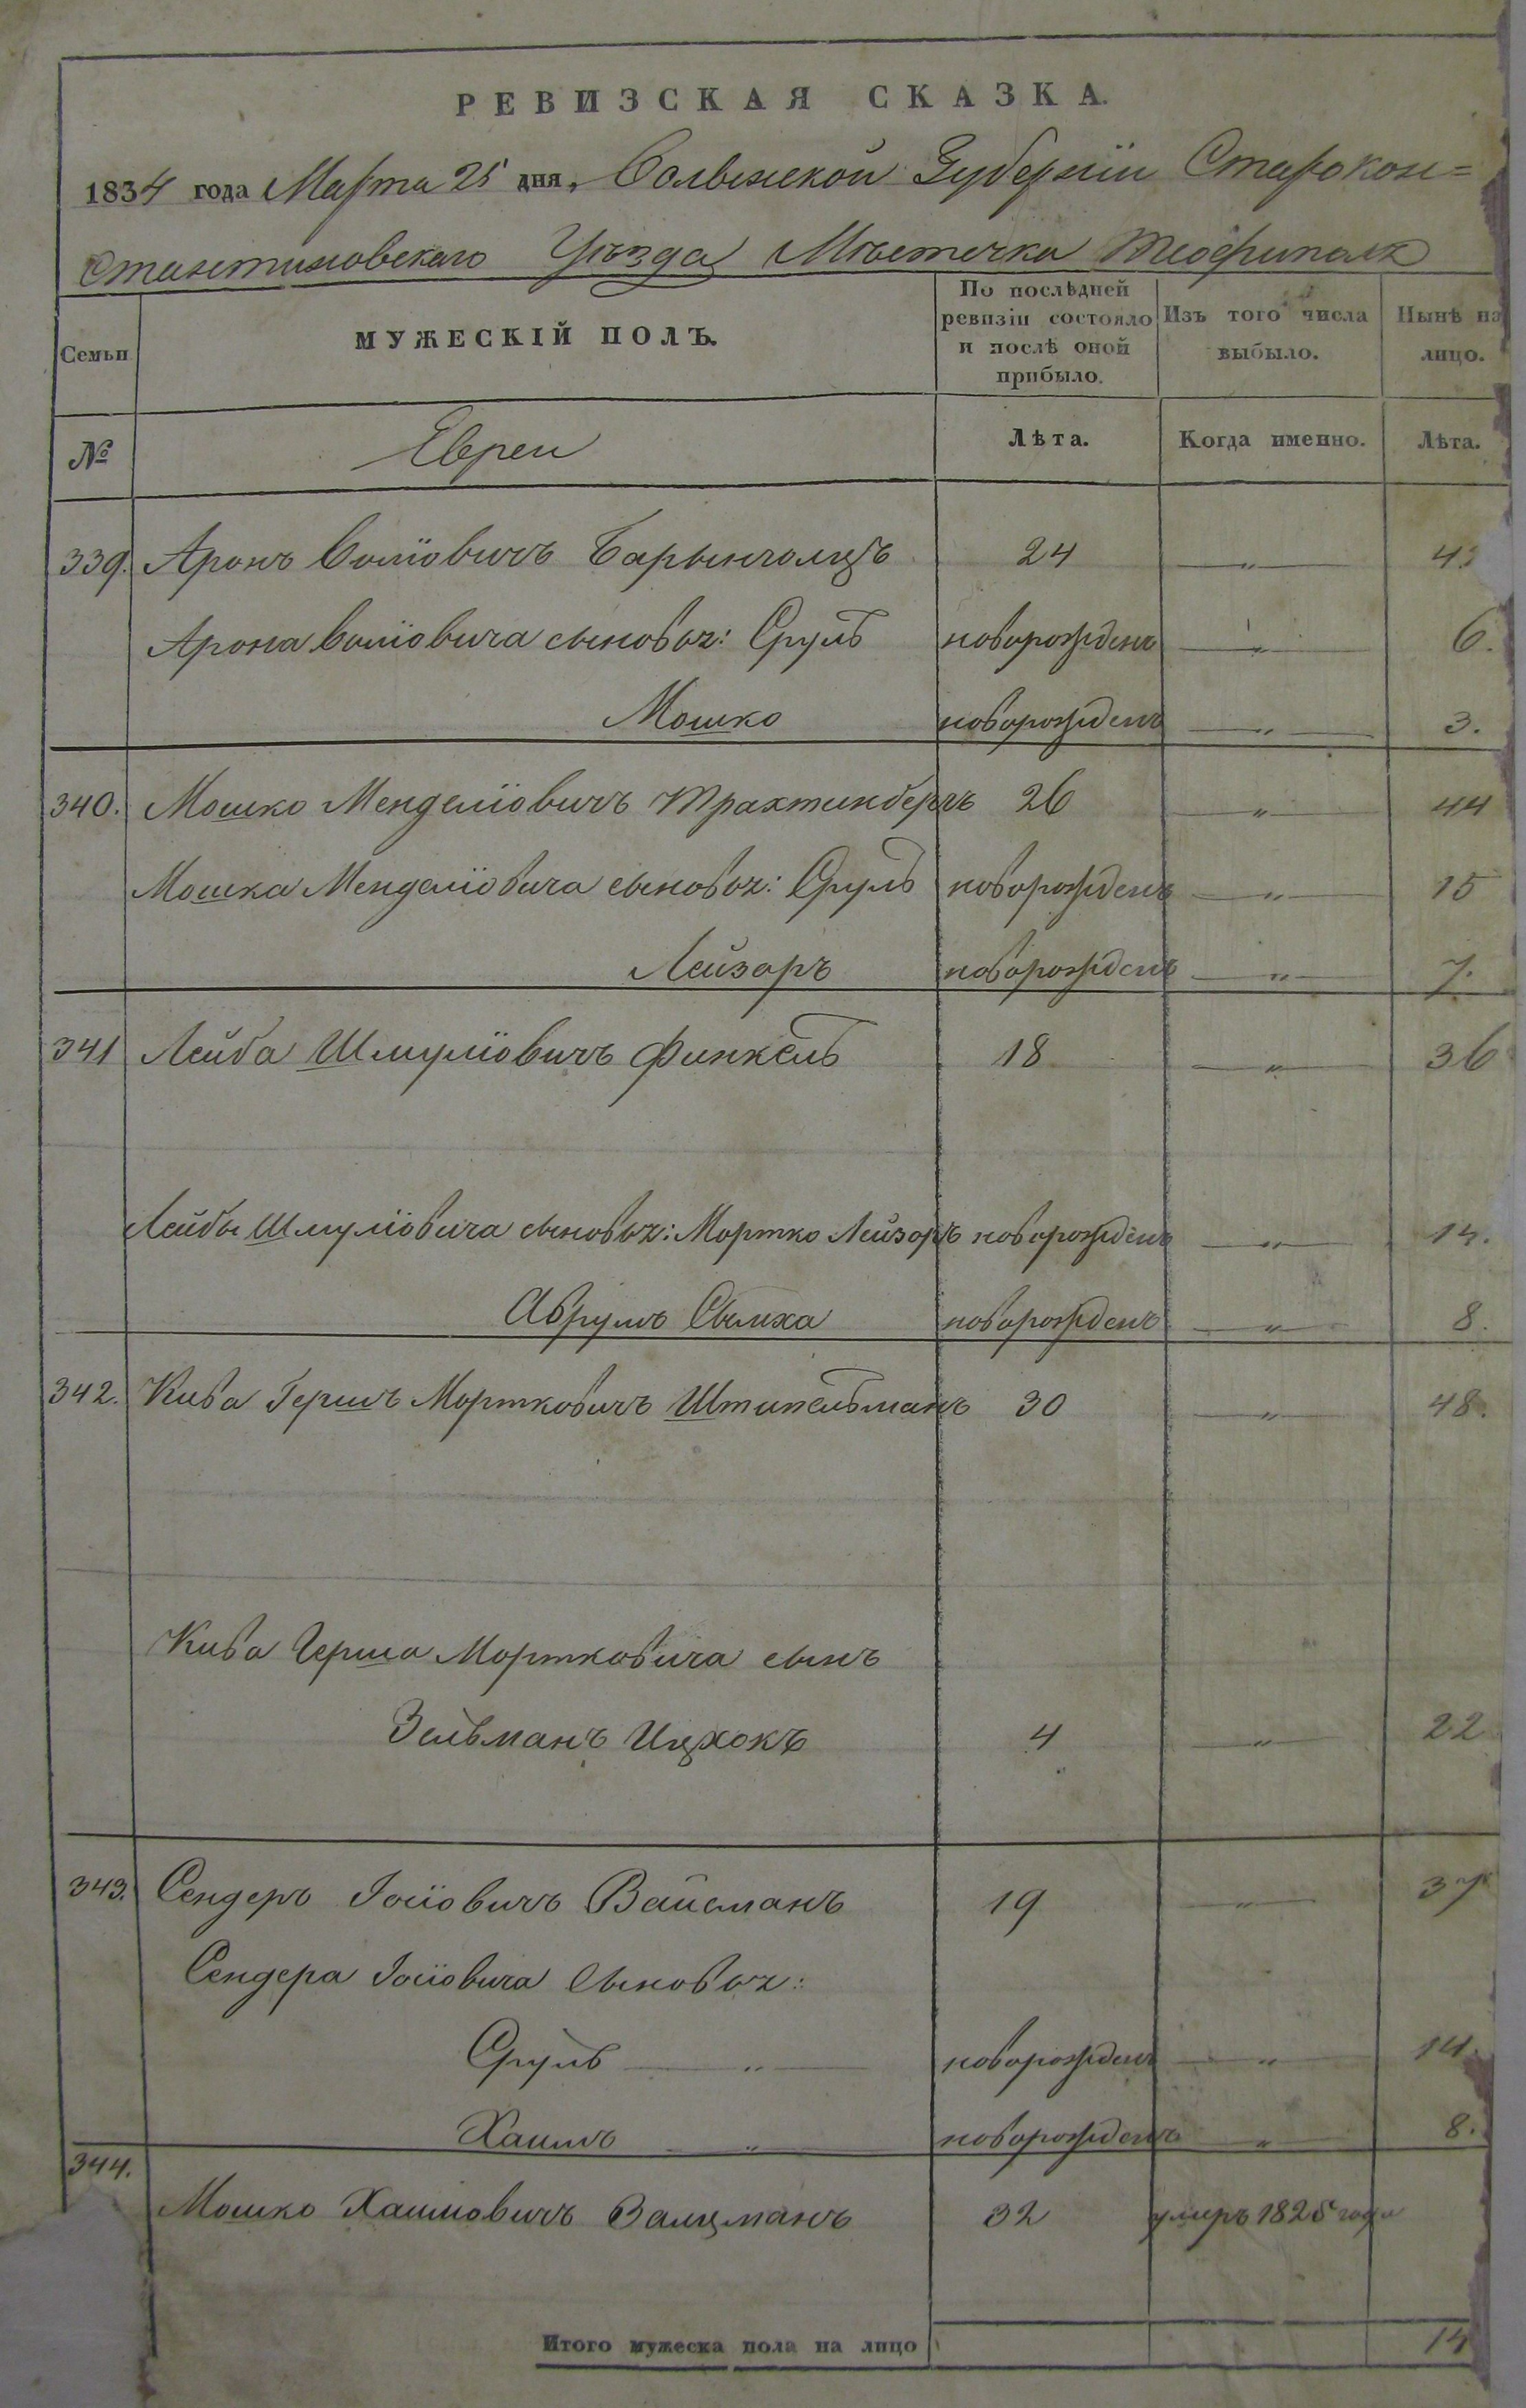 РЕВИЗСКАЯ СКАЗКА.
1834 года Марта 25 дня, Волынской Губерніи Старокон=
стантиновскаго Уѣзда Мѣстечка Теофиполя
Семьи
МУЖЕСКІЙ ПОЛЪ.
По послѣдней ревизіи состояло и послѣ оной прибыло.
Изъ того числа выбыло.
Нынѣ на лицо.
№ Евреи Лѣта. Когда именно. Лѣта.
339. Аронъ Воліовичъ 24 — „ —
Арона Воліовича сыновья: Сруль новорожденъ — „ — 6.
Мошко новорожденъ — „ — 3.
340. Мошко Менделіовичъ Трахтинберъ 26 — „ — 44
Мошка Менделіовича сыновья: Сруль новорожденъ — „ — 15
Лейзоръ новорожденъ — „ — 7.
341 Лейба Шмуліовичъ Финкель 18 — „ — 36
Лейбы Шмуліовича сыновья: Мортко Лейзоръ новорожденъ — „ — 14.
Аврумъ Сымха новорожденъ — „ — 8.
342. Кива Гершъ Мортковичъ Штипельманъ 30 — „ — 48.
Кива Герша Мортковича сынъ
Зельманъ Ицхокъ 4 — „ — 22
343. Сендеръ Іосіовичъ Вайсманъ 19 — „ — 37
Сендера Іосіовича Сыновья:
Сруль — „ — новорожденъ — „ — 14.
Хаимъ — „ — новорожденъ — „ — 8.
344.
Мошко Хаимовичъ Залцманъ 32 умеръ 1825 года
Итого мужеска пола на лицо 14